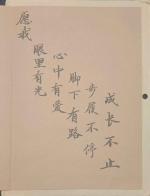 愿我
眼里有光
心中有爱
脚下有路
步履不停
成长不止